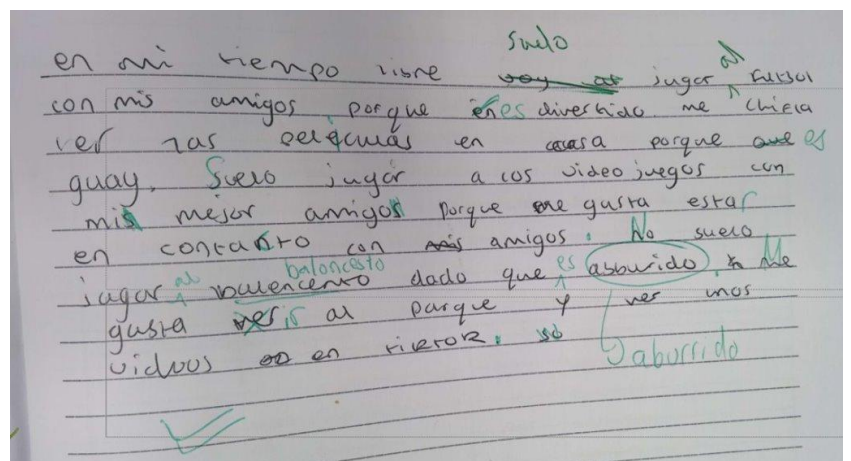 suelo
en mi tiempo libre voy al jugar al futbol
con mis amigos porque es divertido. me chifla
ver las peliculas en casa porque es
guay. Suelo jugar a los videojuegos con
mis mejor amigos porque me gusta estar
en contanto con mis amigos. No suelo
baloncesto
jugar al balencento dado que es asburido. Me
gusta ver ir al parque y ver unos
vidoos en en tictok. so
aburrido